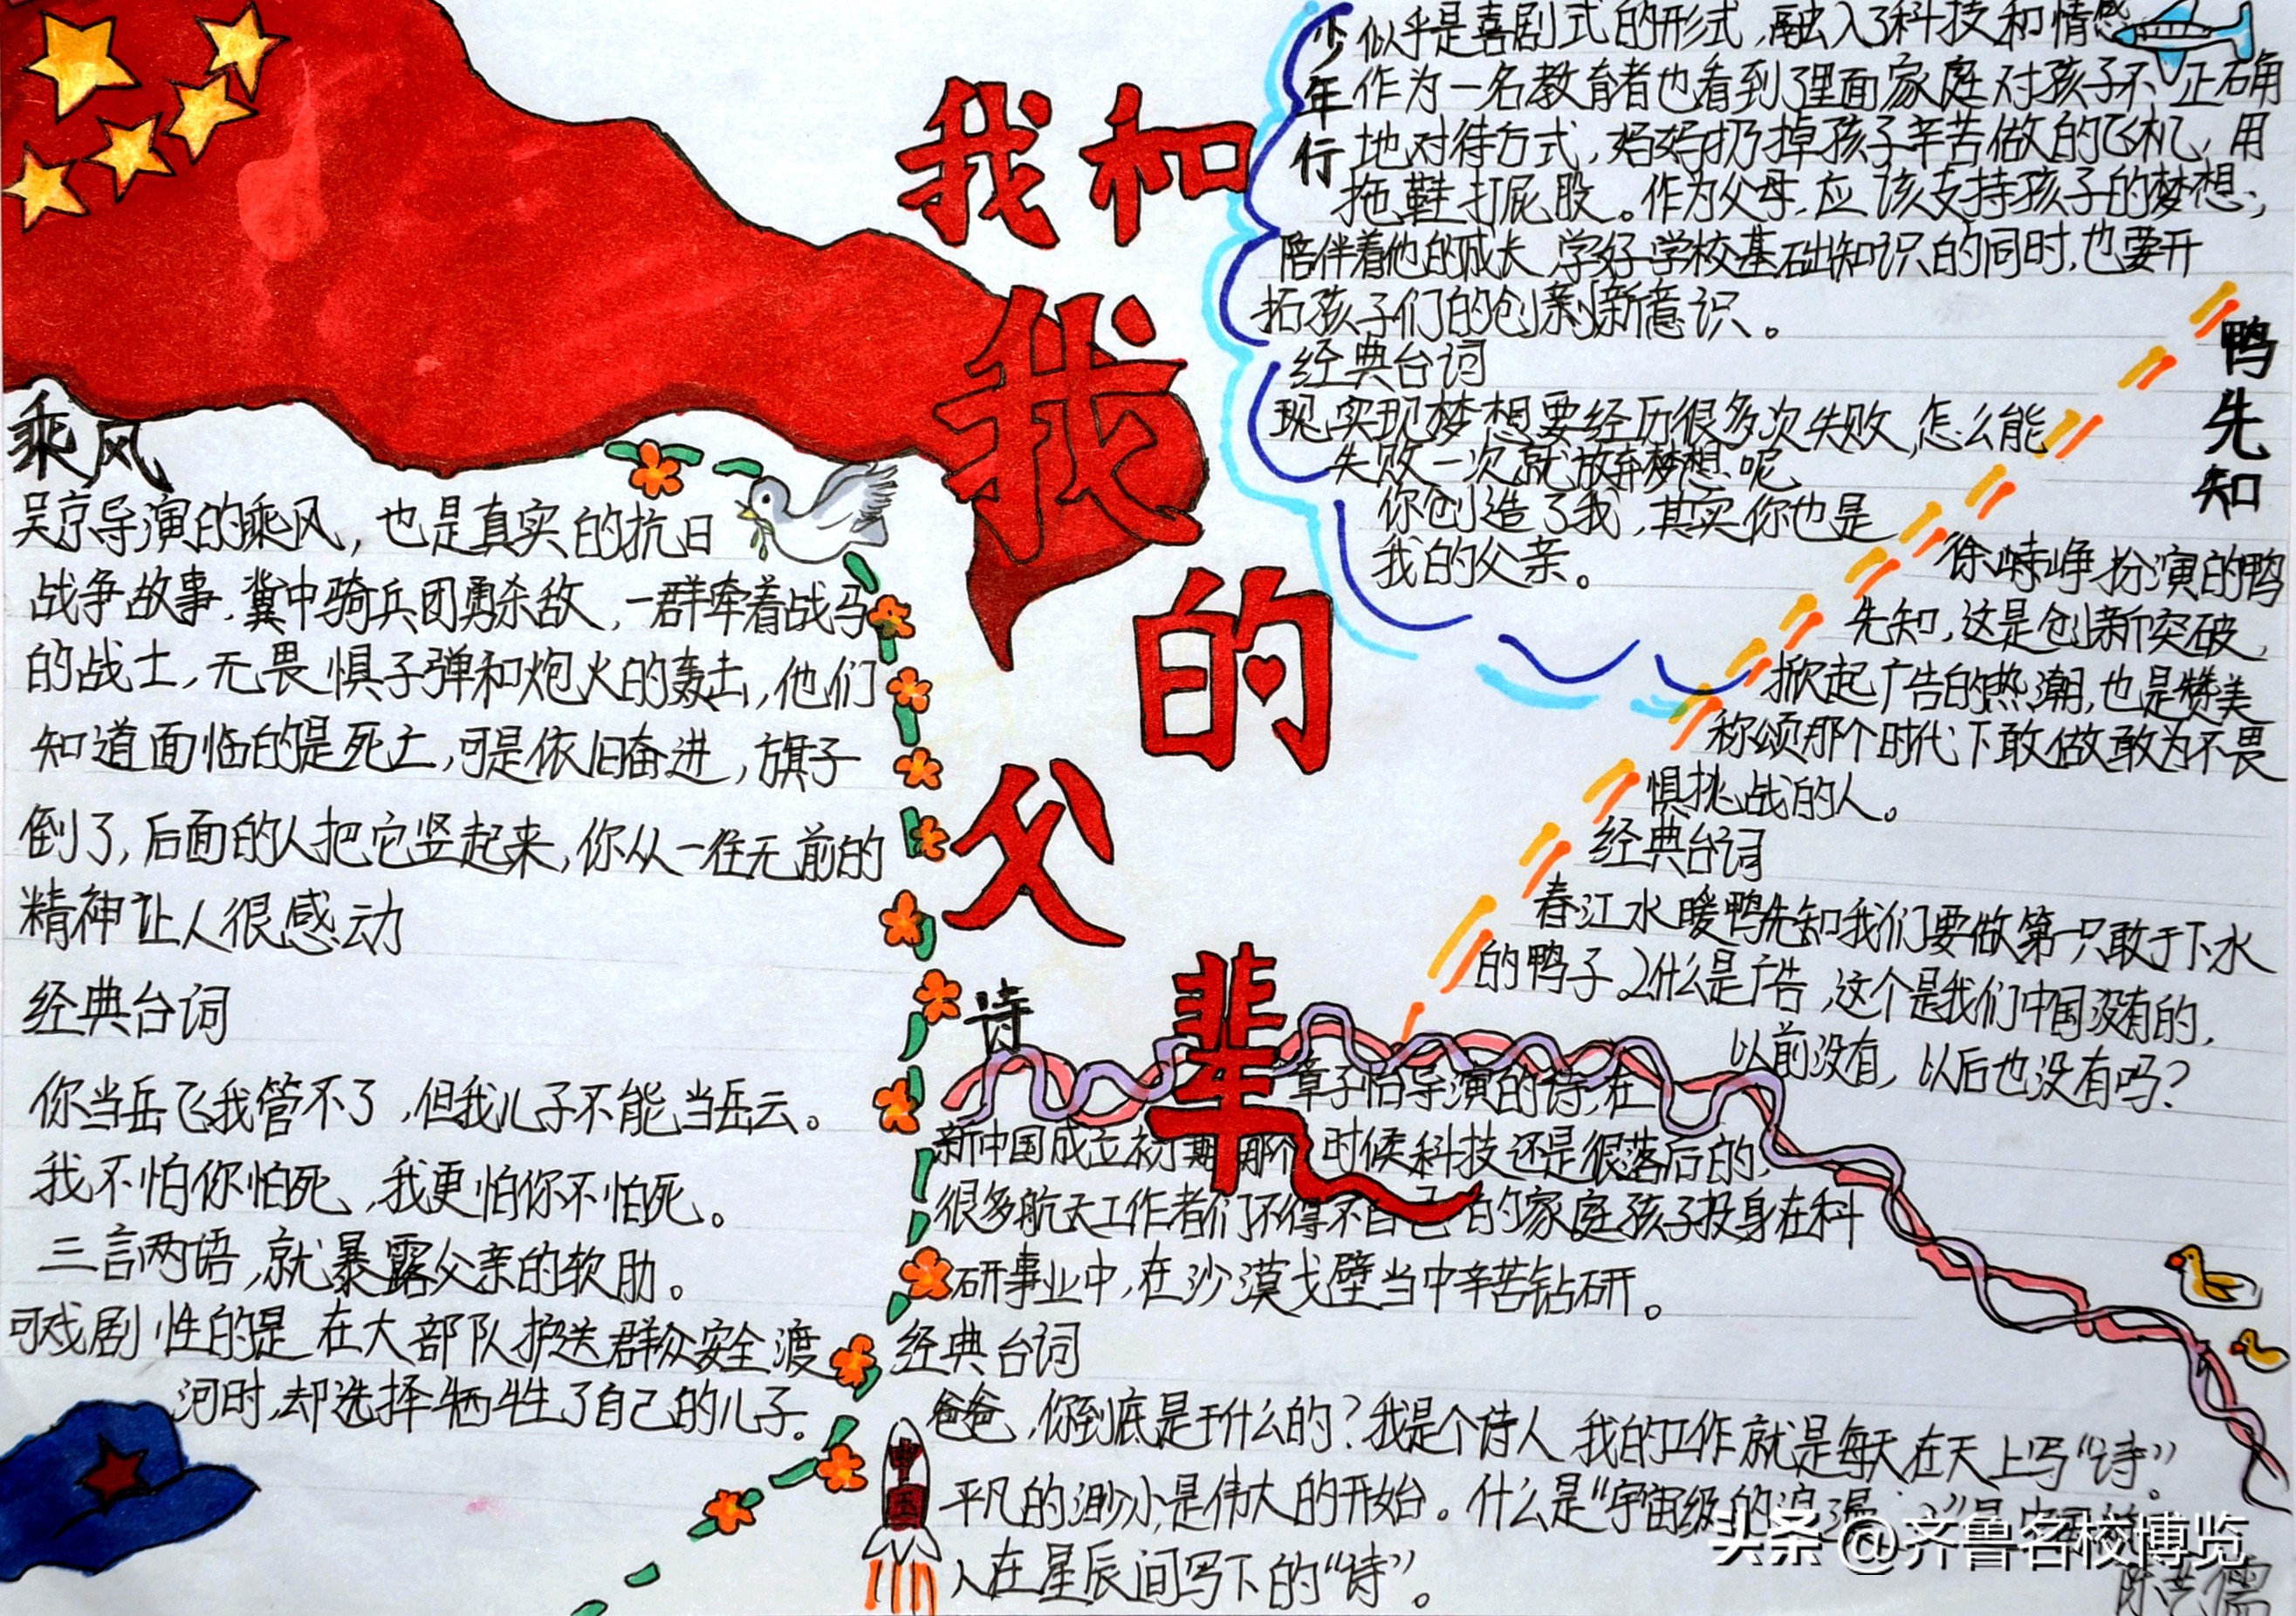 我和
我
的
父
辈
乘风
吴京导演的乘风，也是真实的抗日
战争故事，冀中骑兵团勇杀敌，一群牵着战马
的战士，无畏惧子弹和炮火的轰击，他们
知道面临的是死亡，可是依旧奋进，旗子
倒了，后面的人把它竖起来，你从一往无前的
精神让人很感动
经典台词
你当岳飞我管不了，但我儿子不能当岳云。
我不怕你怕死，我更怕你不怕死。
三言两语，就暴露父亲的软肋。
可戏剧性的是在大部队护送群众安全渡
河时，却选择牺牲了自己的儿子。
诗
章子怡导演的诗，在
新中国成立初期那个时候科技还是很落后的，
很多航天工作者们不得不自己的家庭孩子投身在科
研事业中，在沙漠戈壁当中辛苦钻研。
经典台词
爸爸，你到底是干什么的？我是个诗人 我的工作就是每天在天上写“诗”。
平凡的渺小是伟大的开始。什么是“宇宙级的浪漫
人在星辰间写下的“诗”。
中国
少年行
似乎是喜剧式的形式，融入了科技和情感
作为一名教育者也看到了里面家庭对孩子不正确
地对待方式，妈妈扔掉孩子辛苦做的飞机，用
拖鞋打屁股。作为父母，应该支持孩子的梦想，
陪伴着他的成长，学好学校基础知识的同时，也要开
拓孩子们的创新意识。
经典台词
现实现梦想要经历很多次失败，怎么能
失败一次就放弃梦想呢
你创造了我，其实你也是
我的父亲。
鸭先知
徐峥峥扮演的鸭
先知，这是创新突破，
掀起广告的热潮，也是赞美
称颂那个时代下敢做敢为不畏
惧挑战的人。
经典台词
春江水暖鸭先知我们要做第一只敢于下水
的鸭子。2什么是广告，这个是我们中国没有的，
以前没有，以后也没有吗？
头条 @齐鲁名校博览